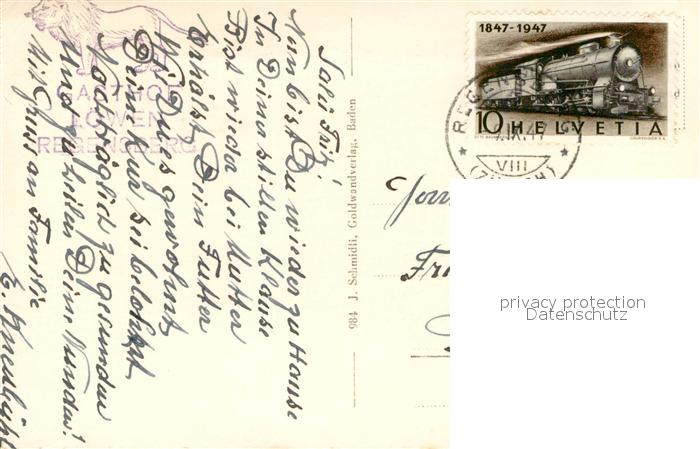 Salü Fritz!
Nun bist Du wieder zu Hause
In Deiner stillen Klause
Bist wieder bei Mutter
Erhältst Dein Futter
Wie Du es gewohnt
Deine Kur sei belohnt
Nachträglich zu gesunden
Und zu heilen Deine Wunden!
Mit Gruss an Familie
E.
GASTHOF
LÖWEN
REGENSBERG
984 J. Schmidli, Goldwandverlag, Baden
1847-1947
10 HELVETIA
REG
VIII
(ZÜRICH)
Fri
privacy protection
Datenschutz